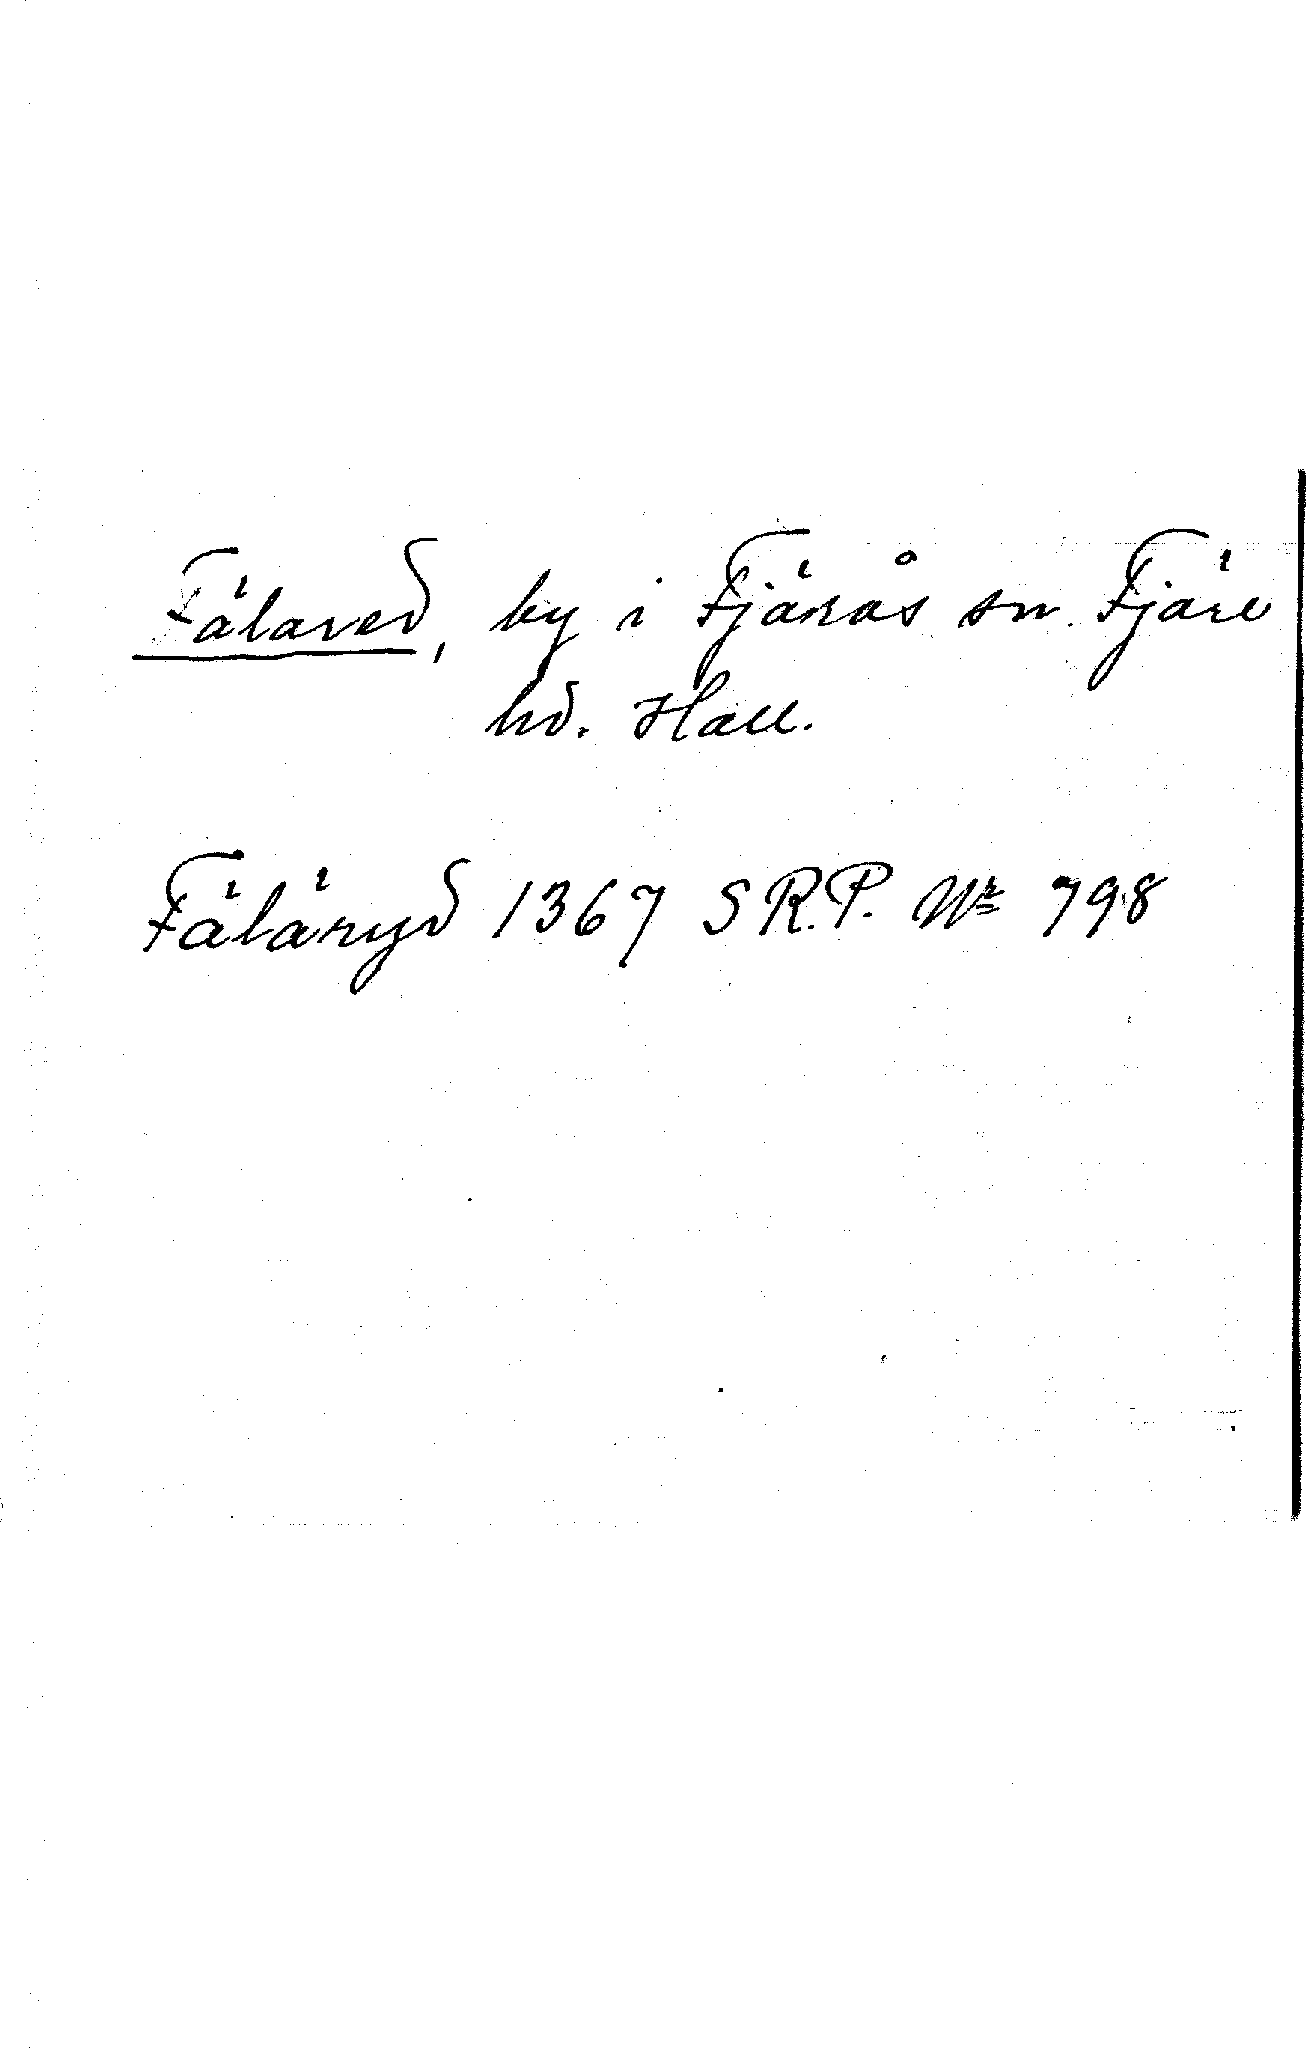 Fälared, by i Fjärås sn. Fjäre
hd. Hall.
Fäläryd 1367 S R.P. Nr 798